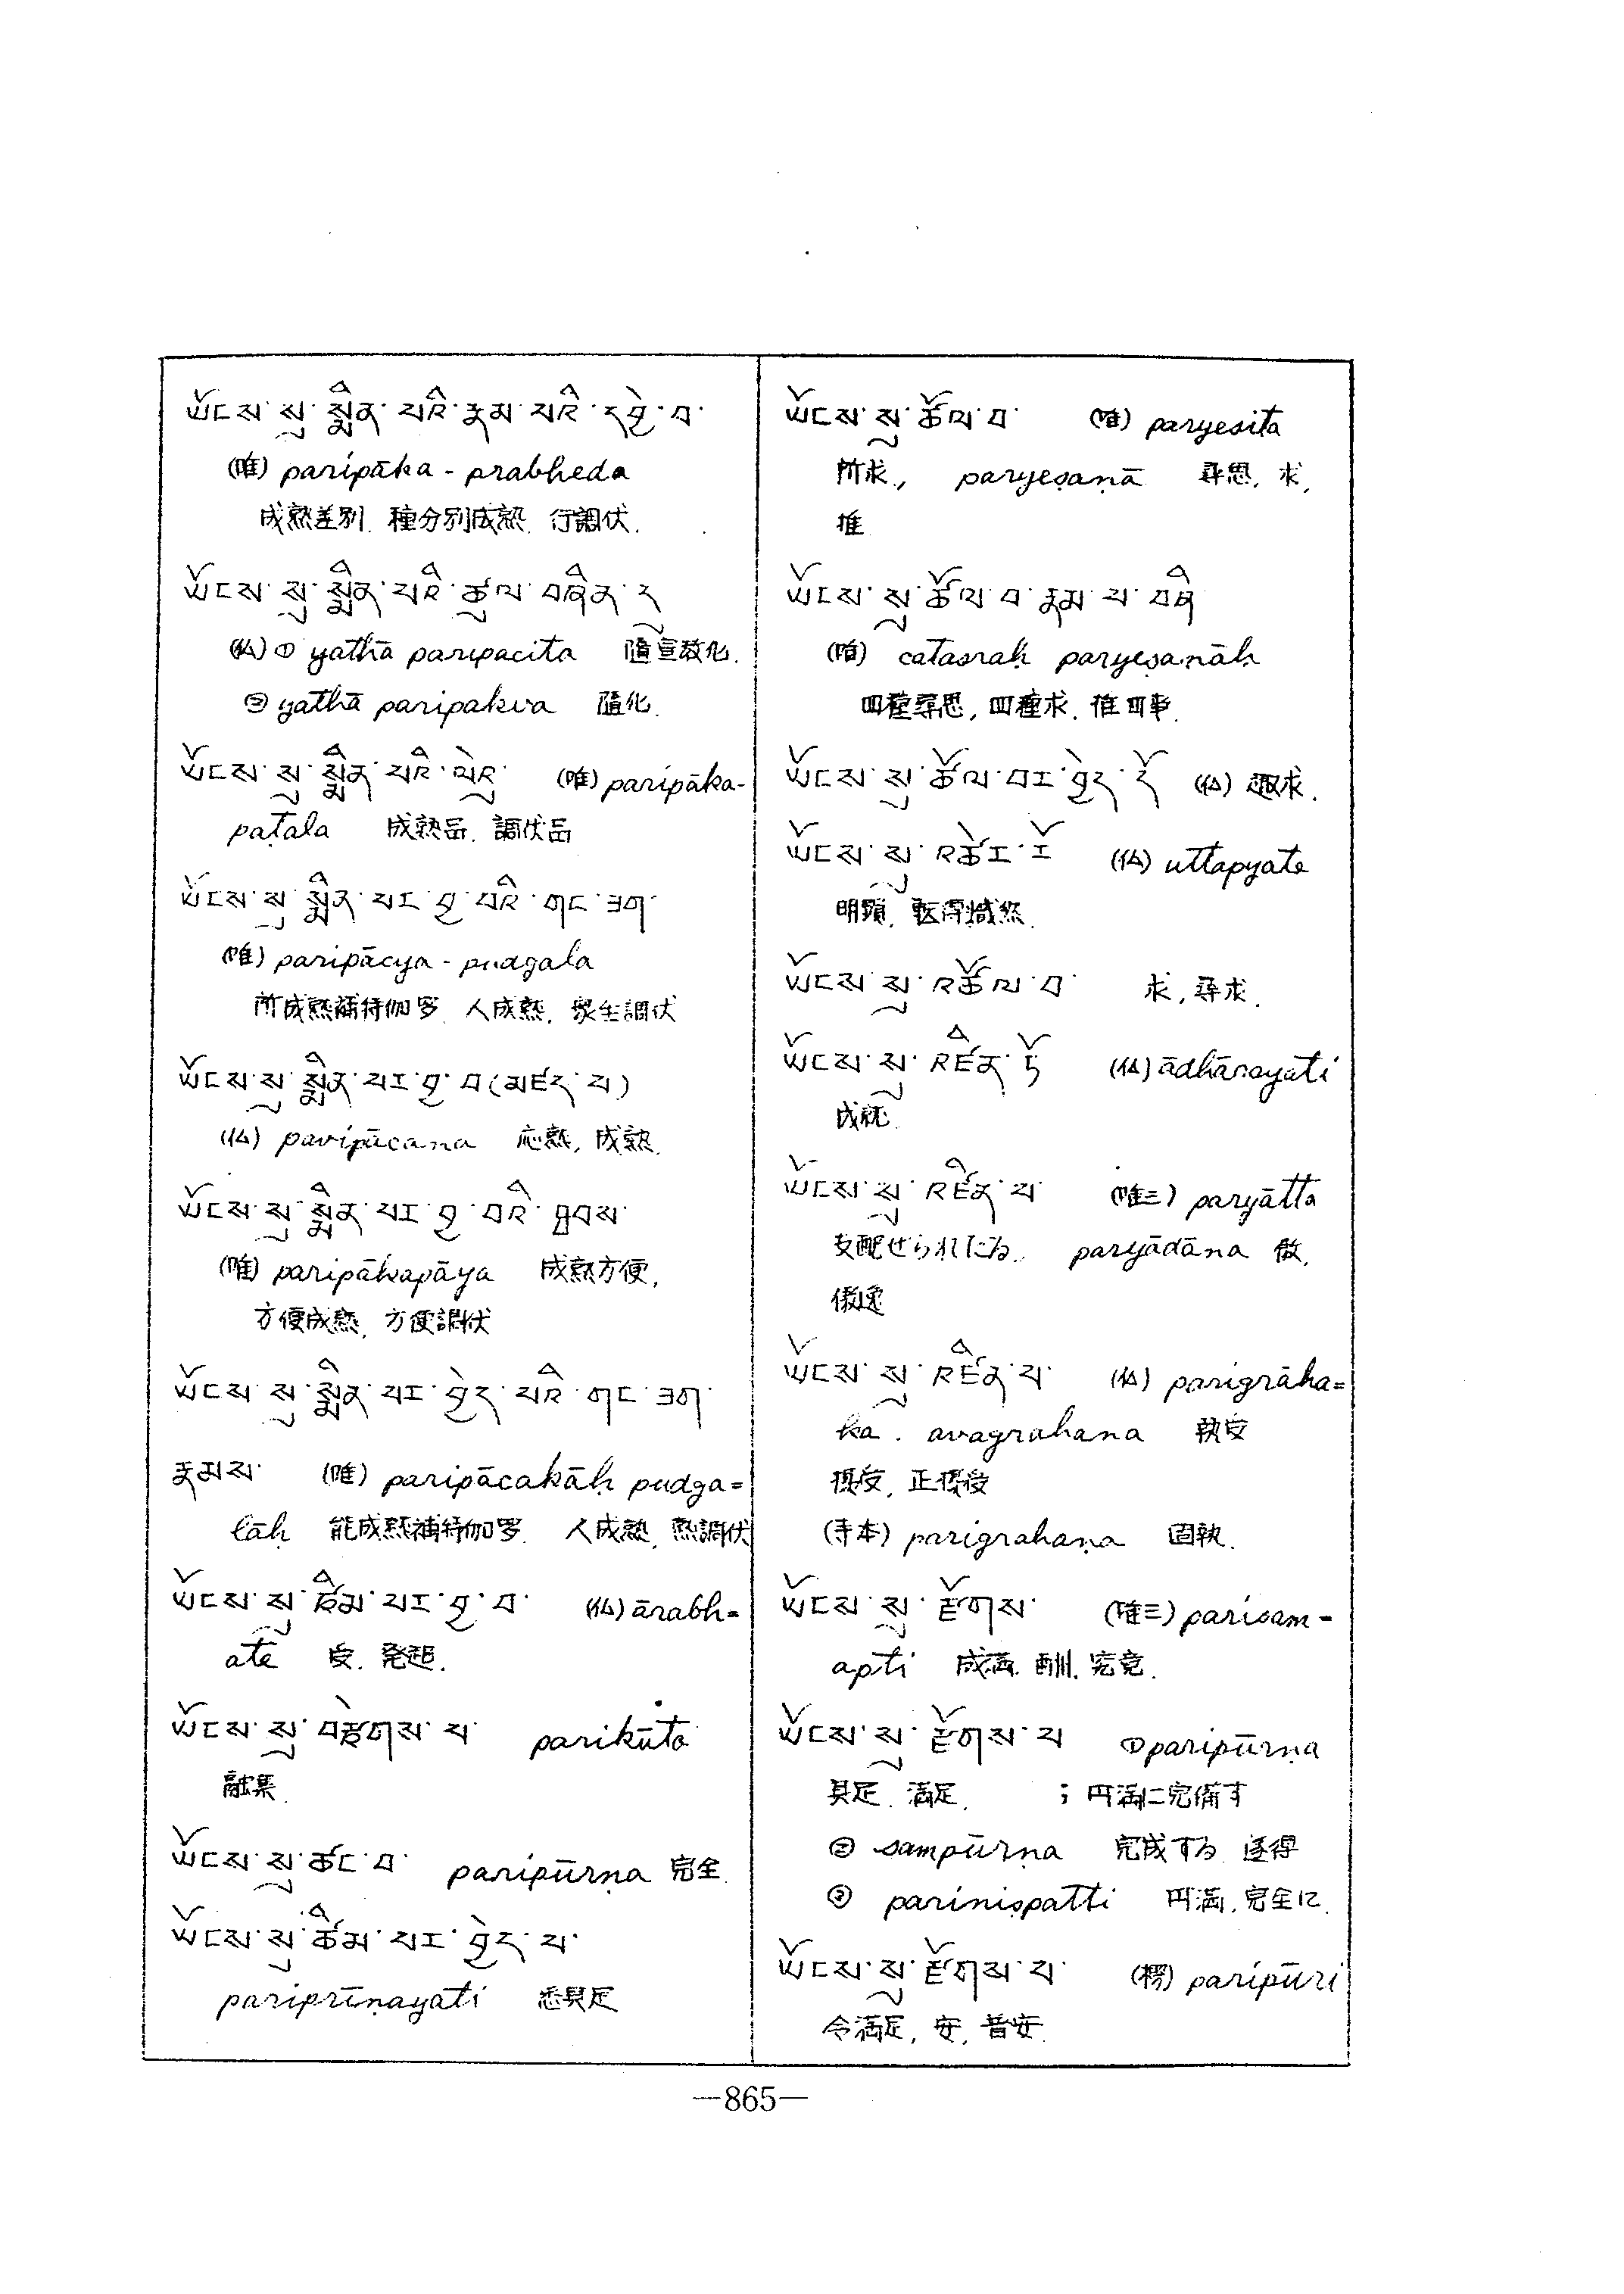 ཡོངས་སུ་སྨིན་པའི་རྣམ་པའི་དབྱེ་བ་
(唯) paripāka - prabheda
成熟差別. 種分別成熟. 行調伏.
ཡོངས་སུ་སྨིན་པའི་ཚུལ་བཞིན་དུ
(仏) ① yathā paripacita 随宜教化.
② yathā paripakva 隨化.
ཡོངས་སུ་སྨིན་པའི་ལེའུ་ (唯) paripāka-
paṭala 成熟品. 調伏品
ཡོངས་སུ་སྨིན་པར་བྱ་བའི་གང་ཟག་
(唯) paripācya - pudgala
所成熟補特伽罗. 人成熟. 衆生調伏
ཡོངས་སུ་སྨིན་པར་བྱ་བ་(མཛད་པ)
(仏) paripācana 応熟, 成熟.
ཡོངས་སུ་སྨིན་པར་བྱ་བའི་ཐབས་
(唯) paripākapāya 成熟方便,
方便成熟. 方便調伏
ཡོངས་སུ་སྨིན་པར་བྱེད་པའི་གང་ཟག་
རྣམས་ (唯) paripācakāḥ pudga=
lāḥ 能成熟補特伽罗. 人成熟. 熟調伏
ཡོངས་སུ་རྩོམ་པར་བྱ་བ་ (仏) ārabh=
ate 発起.
ཡོངས་སུ་བརྩེགས་པ་ parikūṭa
融集.
ཡོངས་སུ་ཚང་བ་ paripūrṇa 完全.
ཡོངས་སུ་ཚིམ་པར་བྱེད་པ་
pariprīṇayati 悉具足
ཡོངས་སུ་ཚོལ་བ་ (唯) paryesita
所求., paryeṣaṇā 尋思, 求,
推
ཡོངས་སུ་ཚོལ་བ་རྣམ་པ་བཞི
(唯) catasraḥ paryeṣanāḥ
四種尋思, 四種求. 推四事.
ཡོངས་སུ་ཚོལ་བར་བྱེད་དོ (仏) 趣求.
ཡོངས་སུ་འཚེར་རོ (仏) uttapyate
明顕. 転得熾然.
ཡོངས་སུ་འཚོལ་བ་ 求, 尋求.
ཡོངས་སུ་འཛིན་ཏོ (仏) ādhārayati
成就.
ཡོངས་སུ་འཛིན་པ་ (唯三) paryātta
支配せられたる. paryādāna 傲,
傲逸
ཡོངས་སུ་འཛིན་པ་ (仏) parigrāha=
ka. avagrahana 執受
摂受. 正摂受
(寺本) parigrahaṇa 固執.
ཡོངས་སུ་རྫོགས་ (唯三) parisam-
apti 成満. 酬. 究竟.
ཡོངས་སུ་རྫོགས་པ ① paripūrṇa
具足. 満足. ; 円満に完備す
② sampūrṇa 完成する. 逐得
③ pariniṣpatti 円満. 完全に.
ཡོངས་སུ་རྫོགས་པ་ (楞) paripūri
令満足, 安, 普安.
—865—